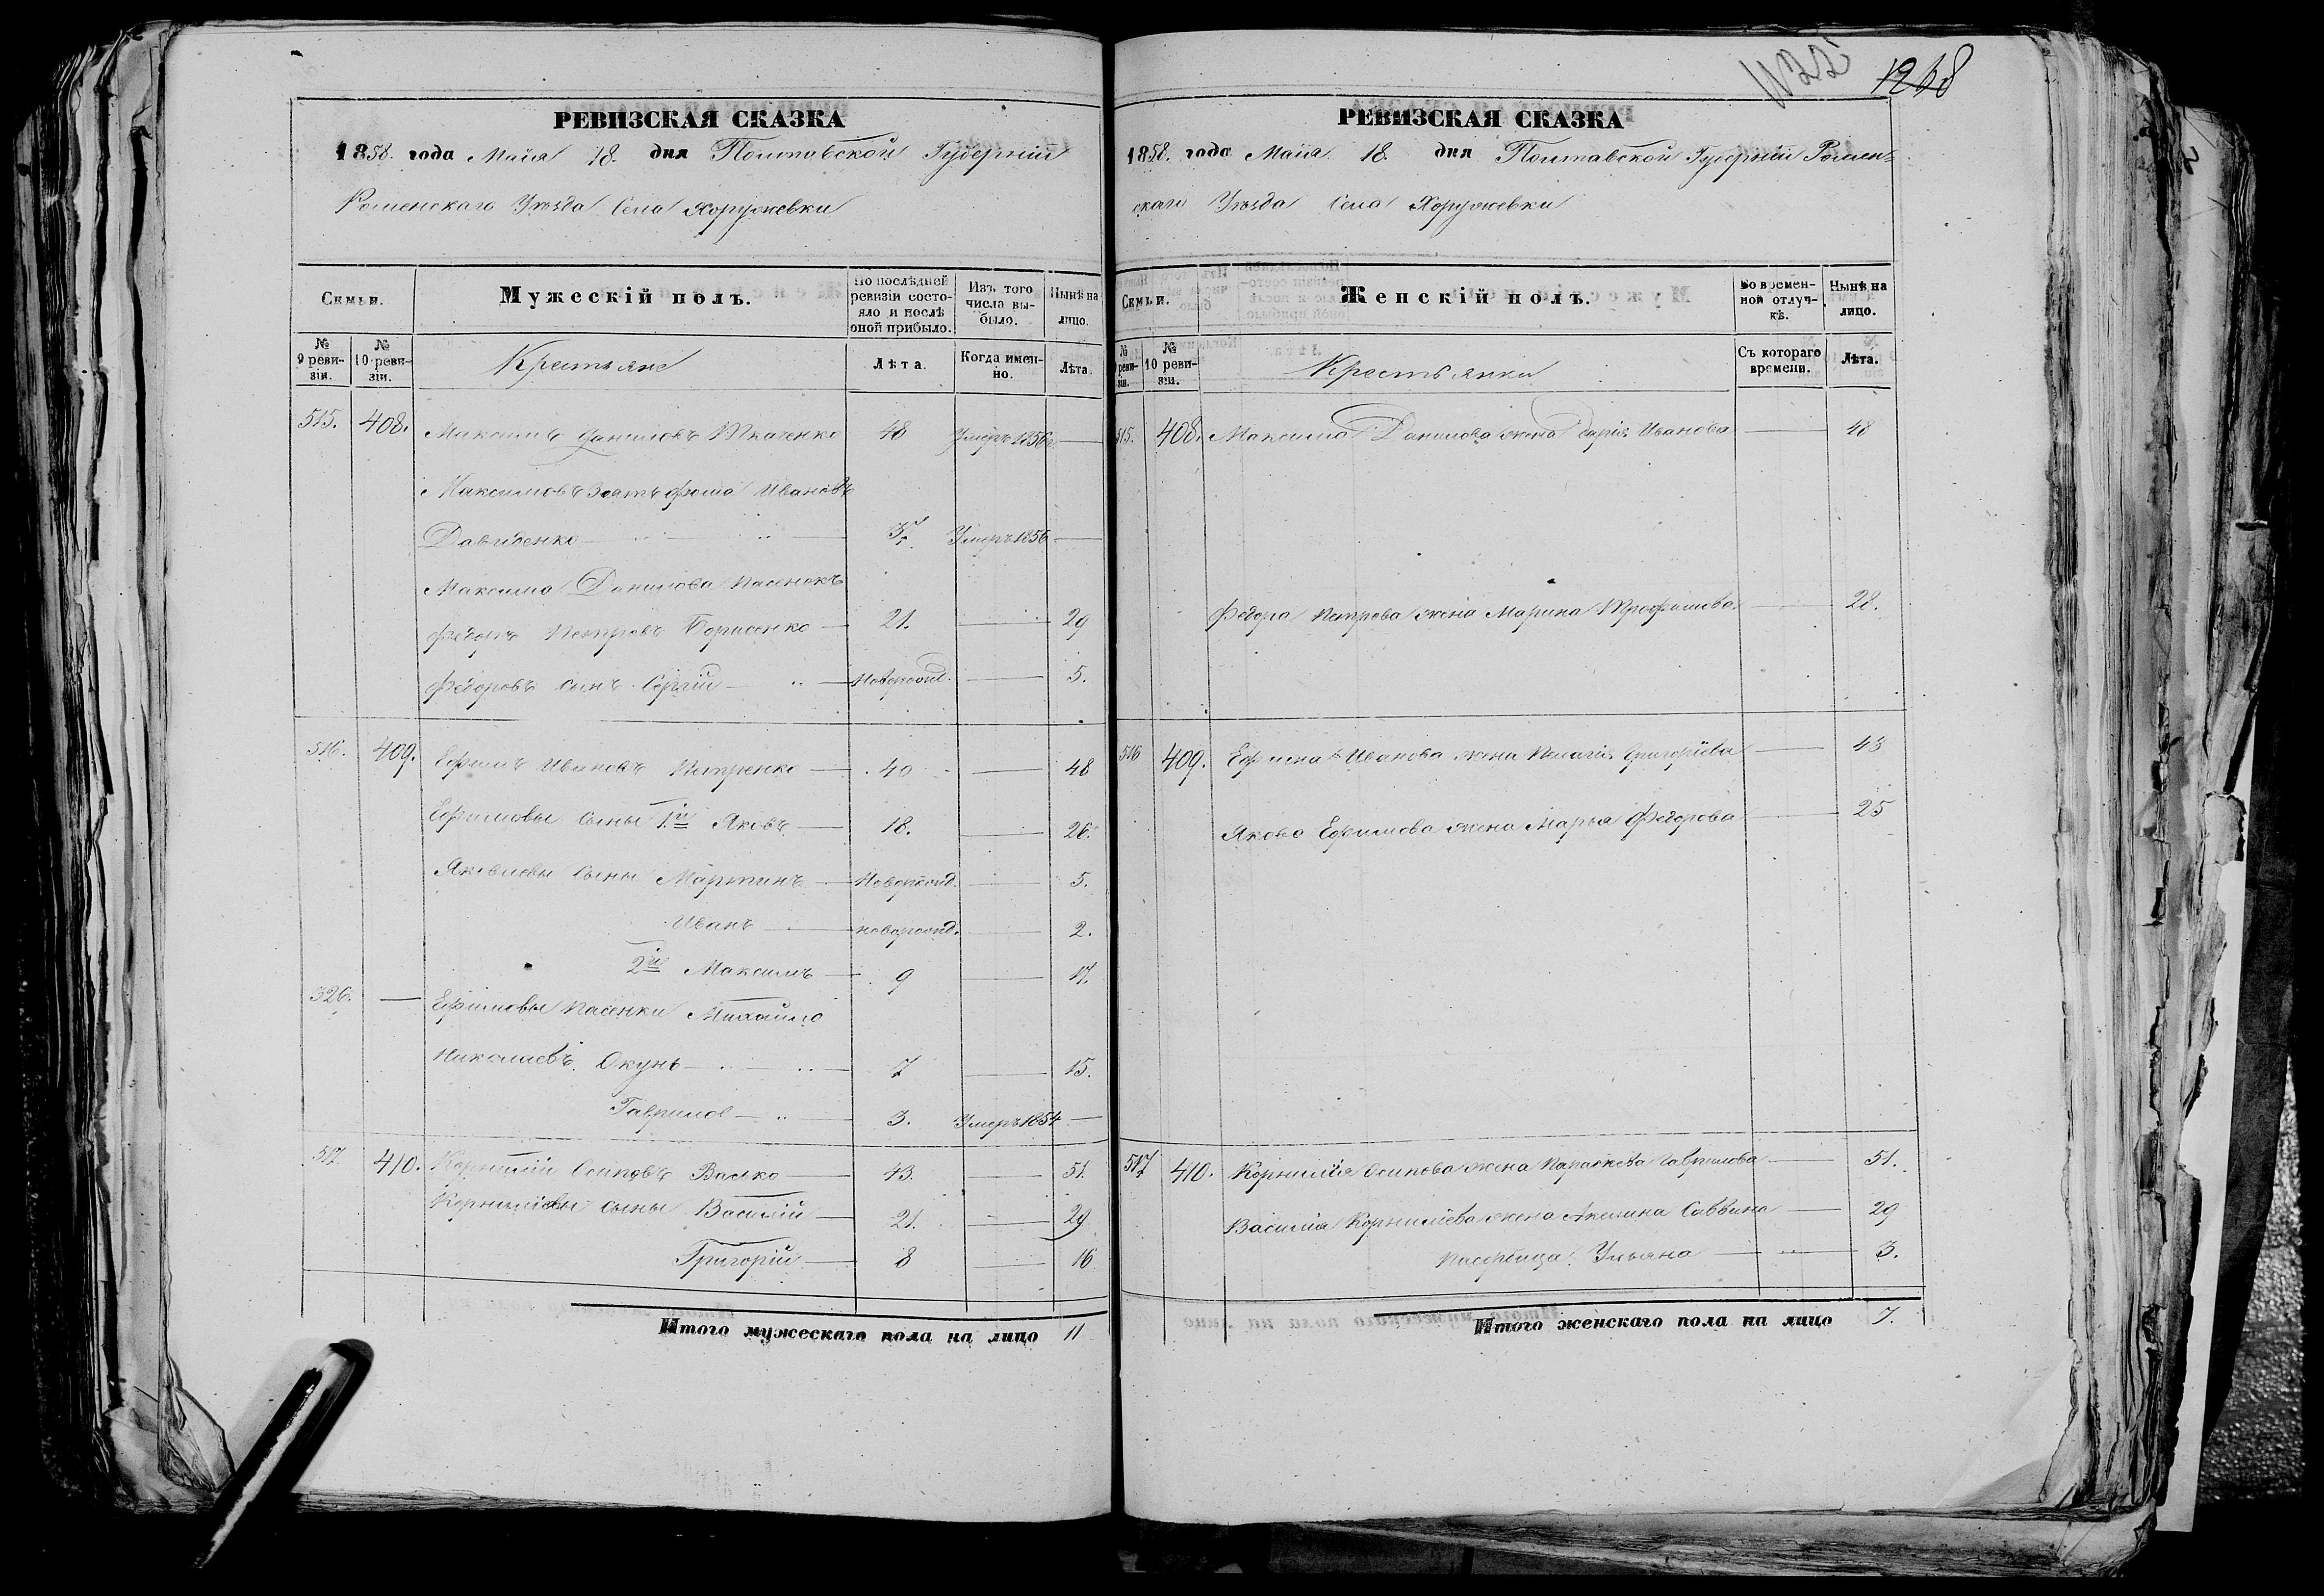 РЕВИЗСКАЯ СКАЗКА
1858. года Маiя 18. дня Полтавской Губернiи
Роменскаго Уѣзда Села Хоружевки
Семьи.
Мужескiй полъ.
По послѣдней ревизiи состояло и послѣ оной прибыло.
Изъ того числа выбыло.
Нынѣ на лицо.
№ 9 ревизiи.
№ 10 ревизiи.
Крестьяне
Лѣта.
Когда именно.
Лѣта.
515. 408. Максимъ Даниловъ Ткаченко 48 Умеръ 1856 —
Максимовъ зять Фома Ивановъ
Давиденко — Умеръ 1856 —
Максима Данилова пасенокъ
Федоръ Петровъ Борисенко — 21. — 29
Федоровъ сынъ Сергiй — новорожд. — 5.
516. 409. Ефимъ Ивановъ Петренко — 40 — 48
Ефимовы сыны 1.й Яковъ — 18. — 26.
Яковлевы сыны Мартинъ — новорожд. — 5.
Иванъ — новорожд. — 2.
2й Максимъ — 9 — 17.
326. — Ефимовы пасенки Михайло
Николаевъ Окунь — 7 — 15.
Гаврило — 3. Умеръ 1854 —
517. 410. Корнилiй Осиповъ Васько — 43. — 51.
Корнилiевы сыны Василiй — 21. — 29
Григорiй — 8 — 16
Итого мужескаго пола на лицо 11
1268
РЕВИЗСКАЯ СКАЗКА
1858. года Маiя 18. дня Полтавской Губернiи Ромен-
скаго Уѣзда Села Хоружевки
Семьи.
Женскiй полъ.
Во временной отлучкѣ.
Нынѣ на лицо.
№ 9 ревизiи.
№ 10 ревизiи.
Крестьянки
Съ котораго времени.
Лѣта.
515. 408. Максима Данилова жена Дарiя Иванова — 48
Федора Петрова жена Марина Трофимова — 28.
516 409. Ефима Иванова жена Пелагiя Григорiева — 43
Якова Ефимова жена Марья Федорова — 25
517 410. Корнилiя Осипова жена Параскева Гаврилова — 51.
Василiя Корнилiева жена Акилина Саввина — 29
пасербица Ульяна — 3.
Итого женскаго пола на лицо 7.